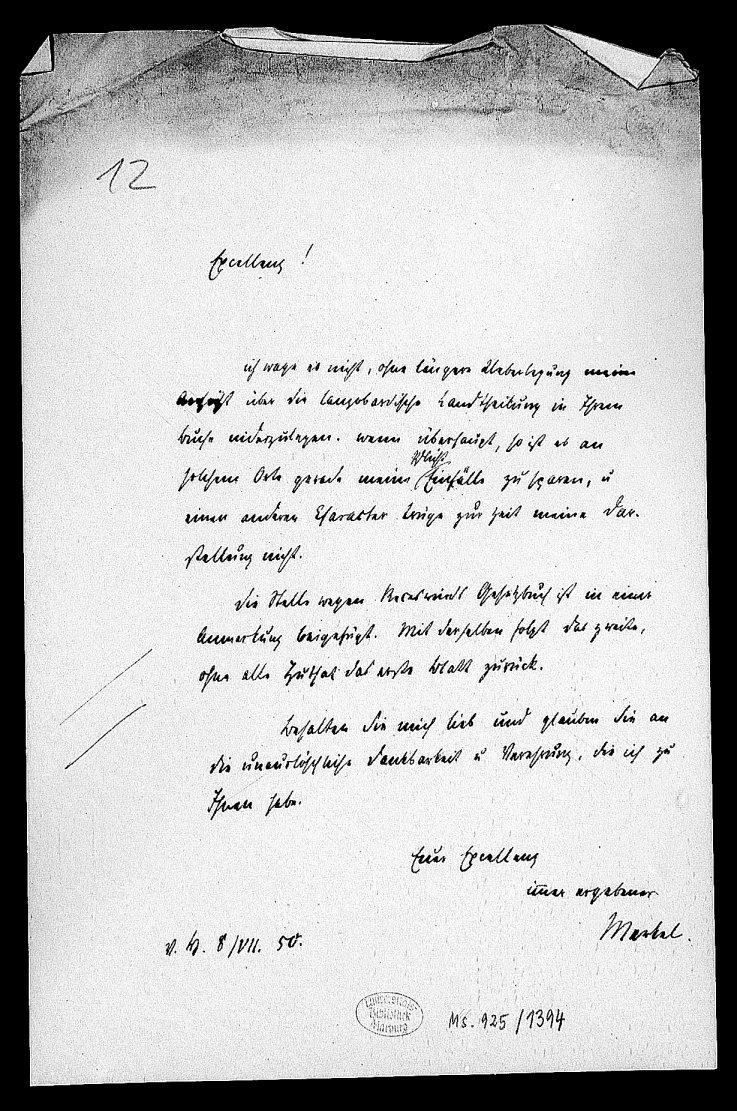 12
Excellenz!
ich wage es nicht, ohne längere Ueberlegung meine
Ansicht über die langobardische Landtheilung in Ihrem
Buche niederzulegen. wenn überhaupt, so ist es an
solchem Orte gerade meine Pflicht Einfälle zu sparen, u
einen anderen Charakter trüge zur Zeit meine Dar-
stellung nicht.
die Stelle wegen Receswinds Gesetzbuch ist in einer
Anmerkung beigefügt. Mit derselben folgt das zweite,
ohne alle Zuthat das erste Blatt zurück.
Behalten Sie mich lieb und glauben Sie an
die unauslöschliche Dankbarkeit u Verehrung, die ich zu
Ihnen habe.
Euer Excellenz
immer ergebener
Merkel.
v. H. 8/VII. 50.
Universitäts-
Bibliothek
Marburg
Ms. 925/1394